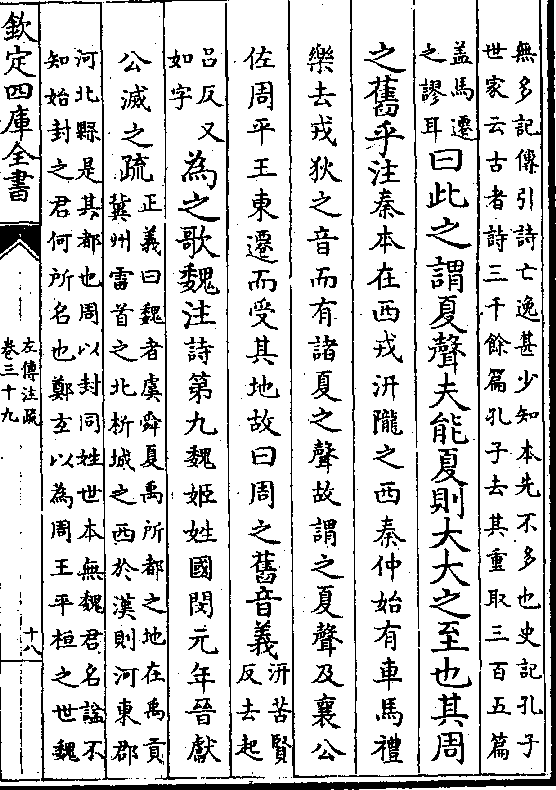 無多記傳引詩亡逸甚少知本先不多也史記孔子
世家云古者詩三千餘篇孔子去其重取三百五篇
蓋馬遷
之謬耳
曰此之謂夏聲夫能夏則大大之至也其周
之舊乎注秦本在西戎汧隴之西秦仲始有車馬禮
樂去戎狄之音而有諸夏之聲故謂之夏聲及襄公
佐周平王東遷而受其地故曰周之舊音義
汧苦賢
反去起
呂反又
如字
為之歌魏注詩第九魏姬姓國閔元年晉獻
公滅之疏
正義曰魏者虞舜夏禹所都之地在禹貢
冀州雷首之北析城之西於漢則河東郡
河北縣是其都也周以封同姓世本無魏君名謚不
知始封之君何所名也鄭玄以為周王平桓之世魏
欽定四庫全書
左傳注疏
卷三十九
十八